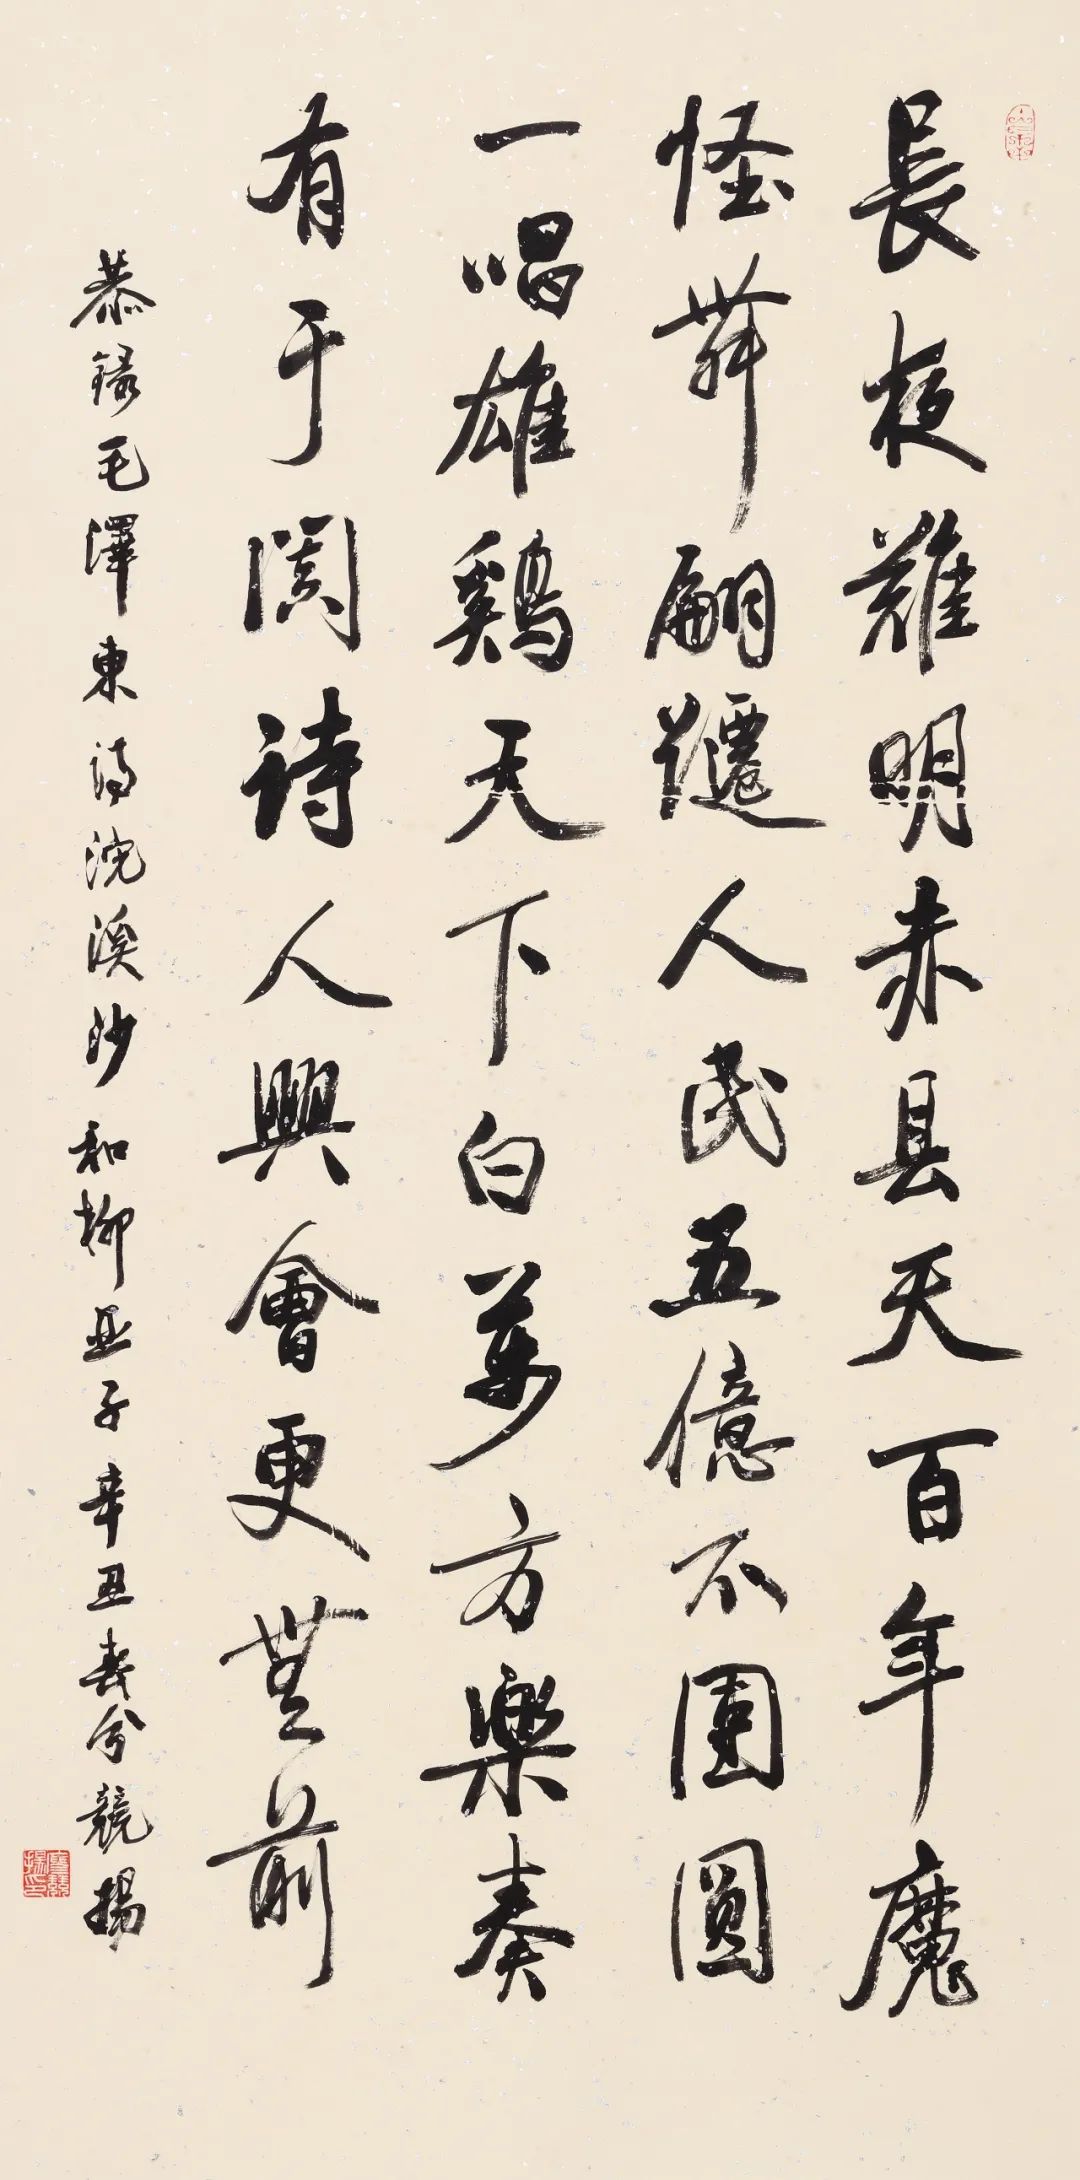 長夜難明赤县天百年魔
怪舞翩躚人民五億不團圓
一唱雄鷄天下白萬方樂奏
有于闐诗人興會更無前
恭錄毛澤東詩浣溪沙和柳亞子辛丑春分競揚